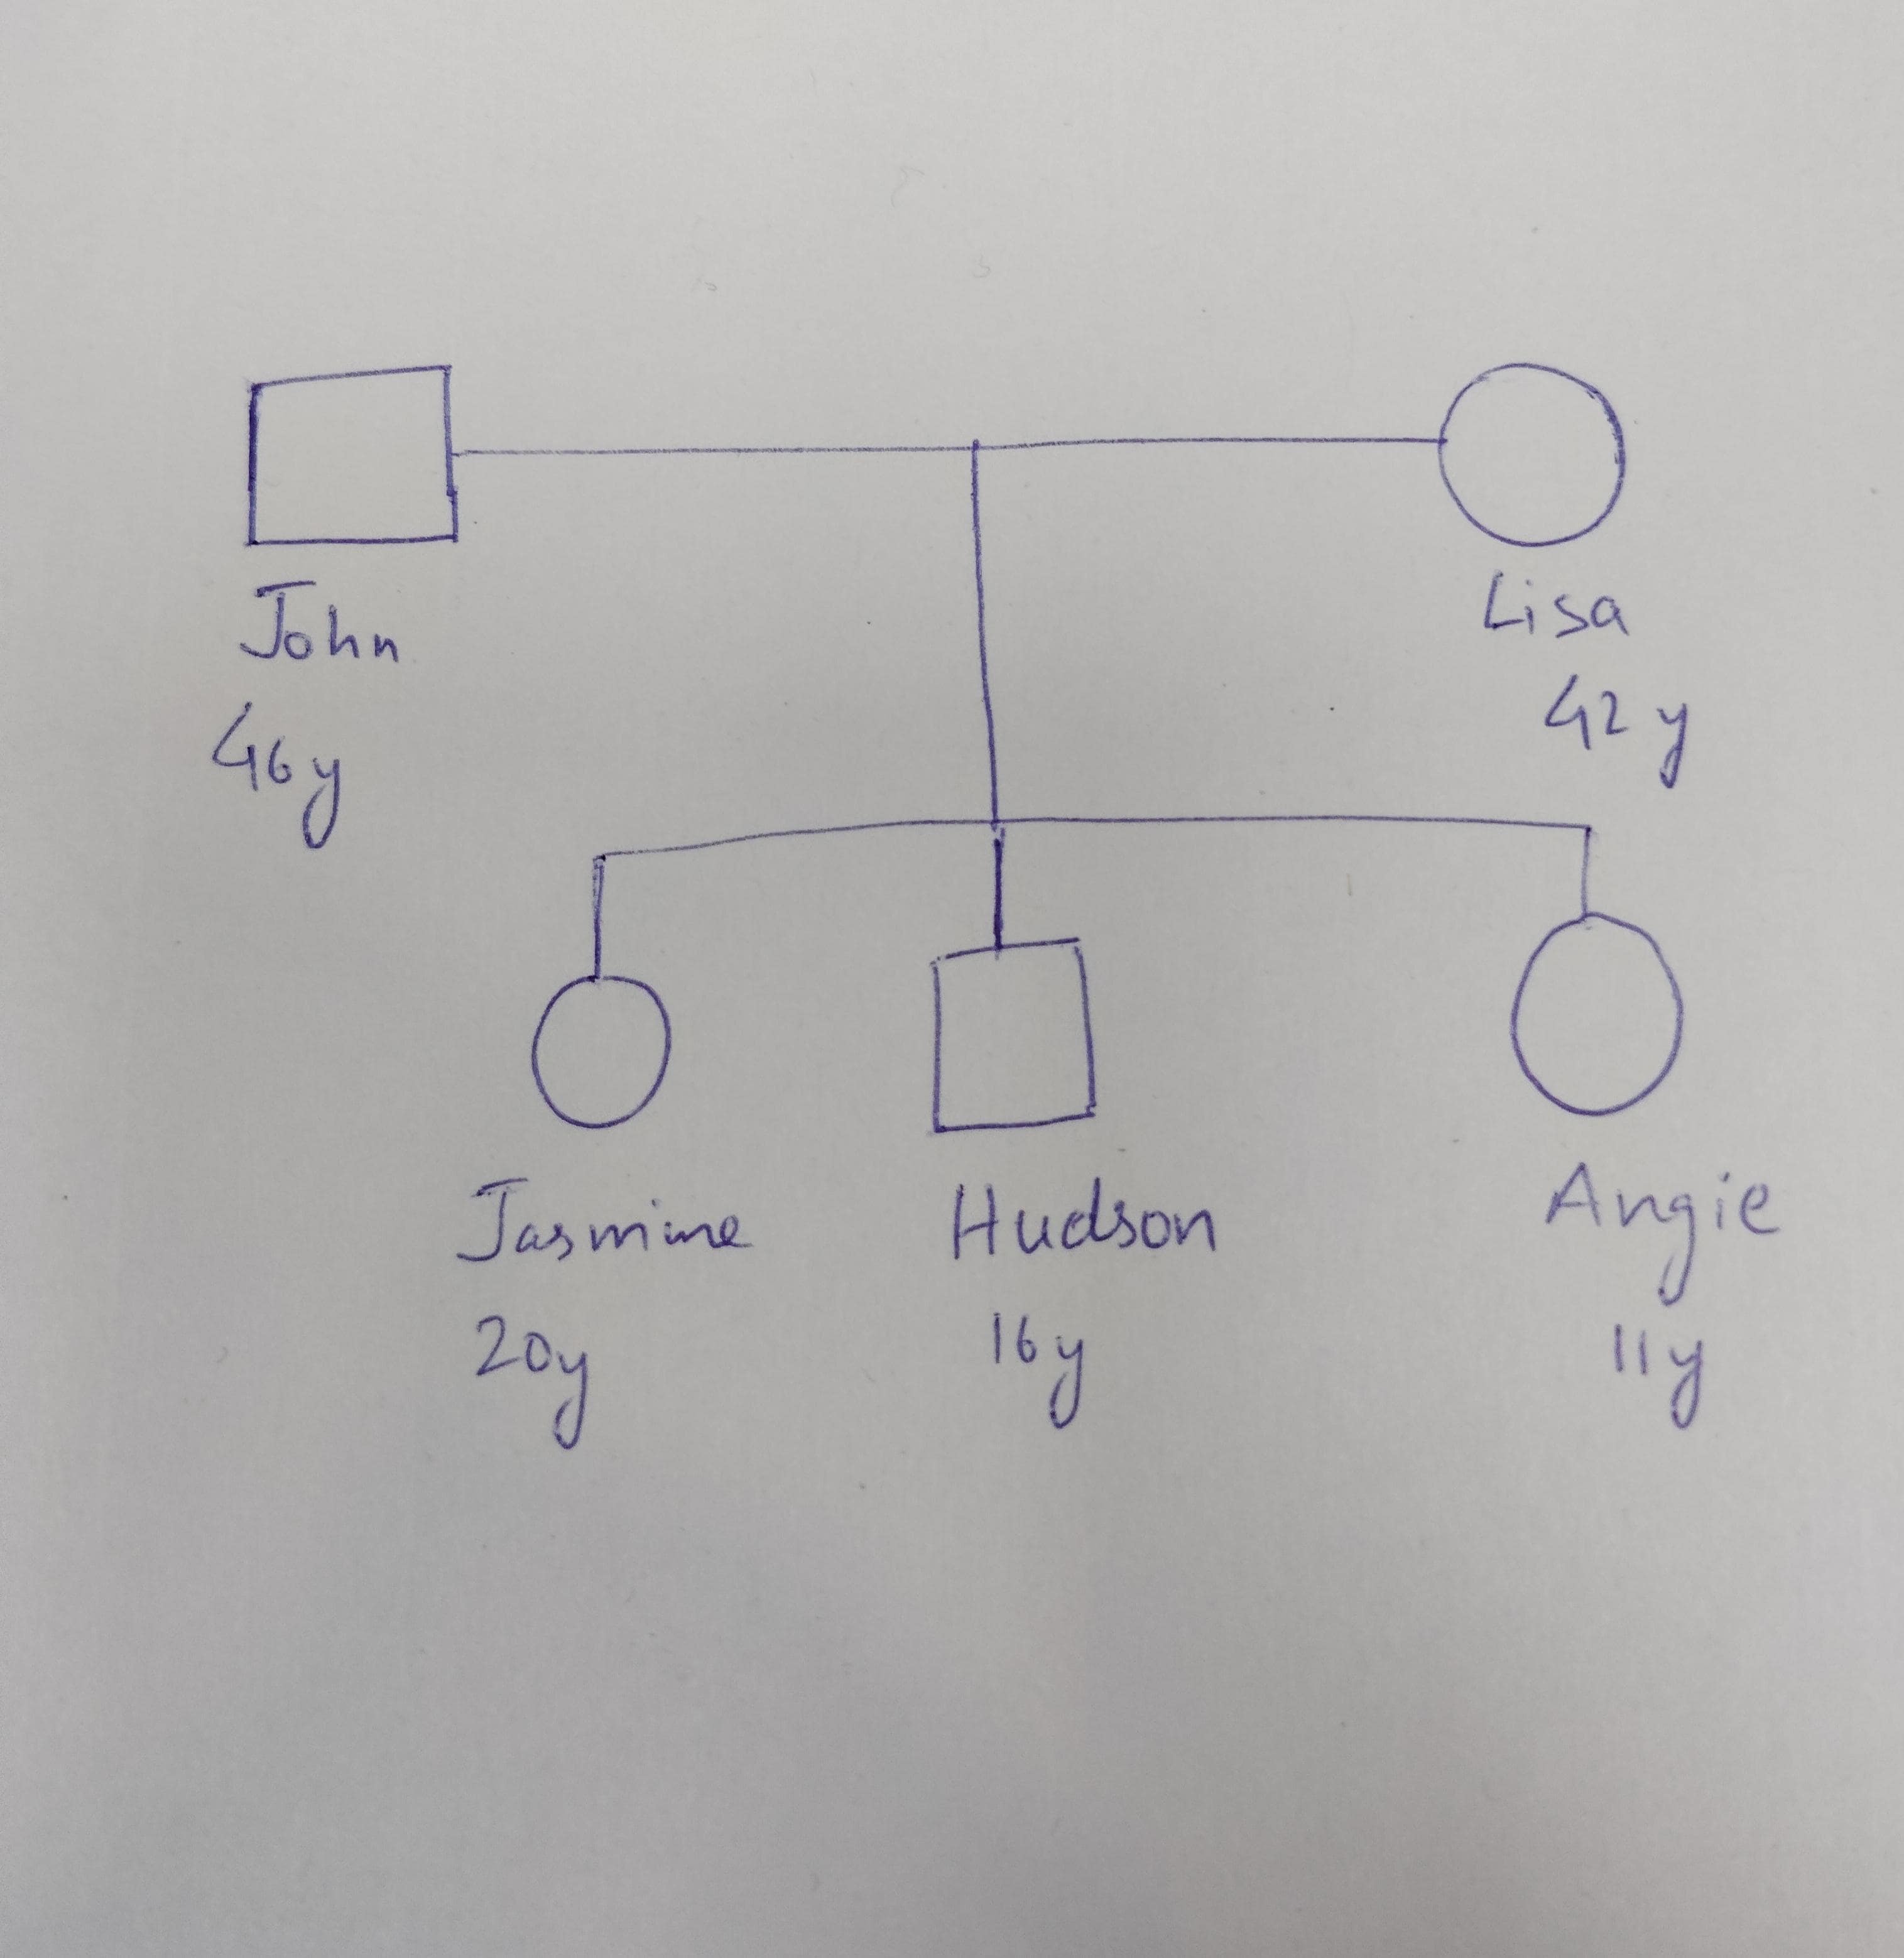 John
46y
Lisa
42y
Jasmine
20y
Hudson
16y
Angie
11y